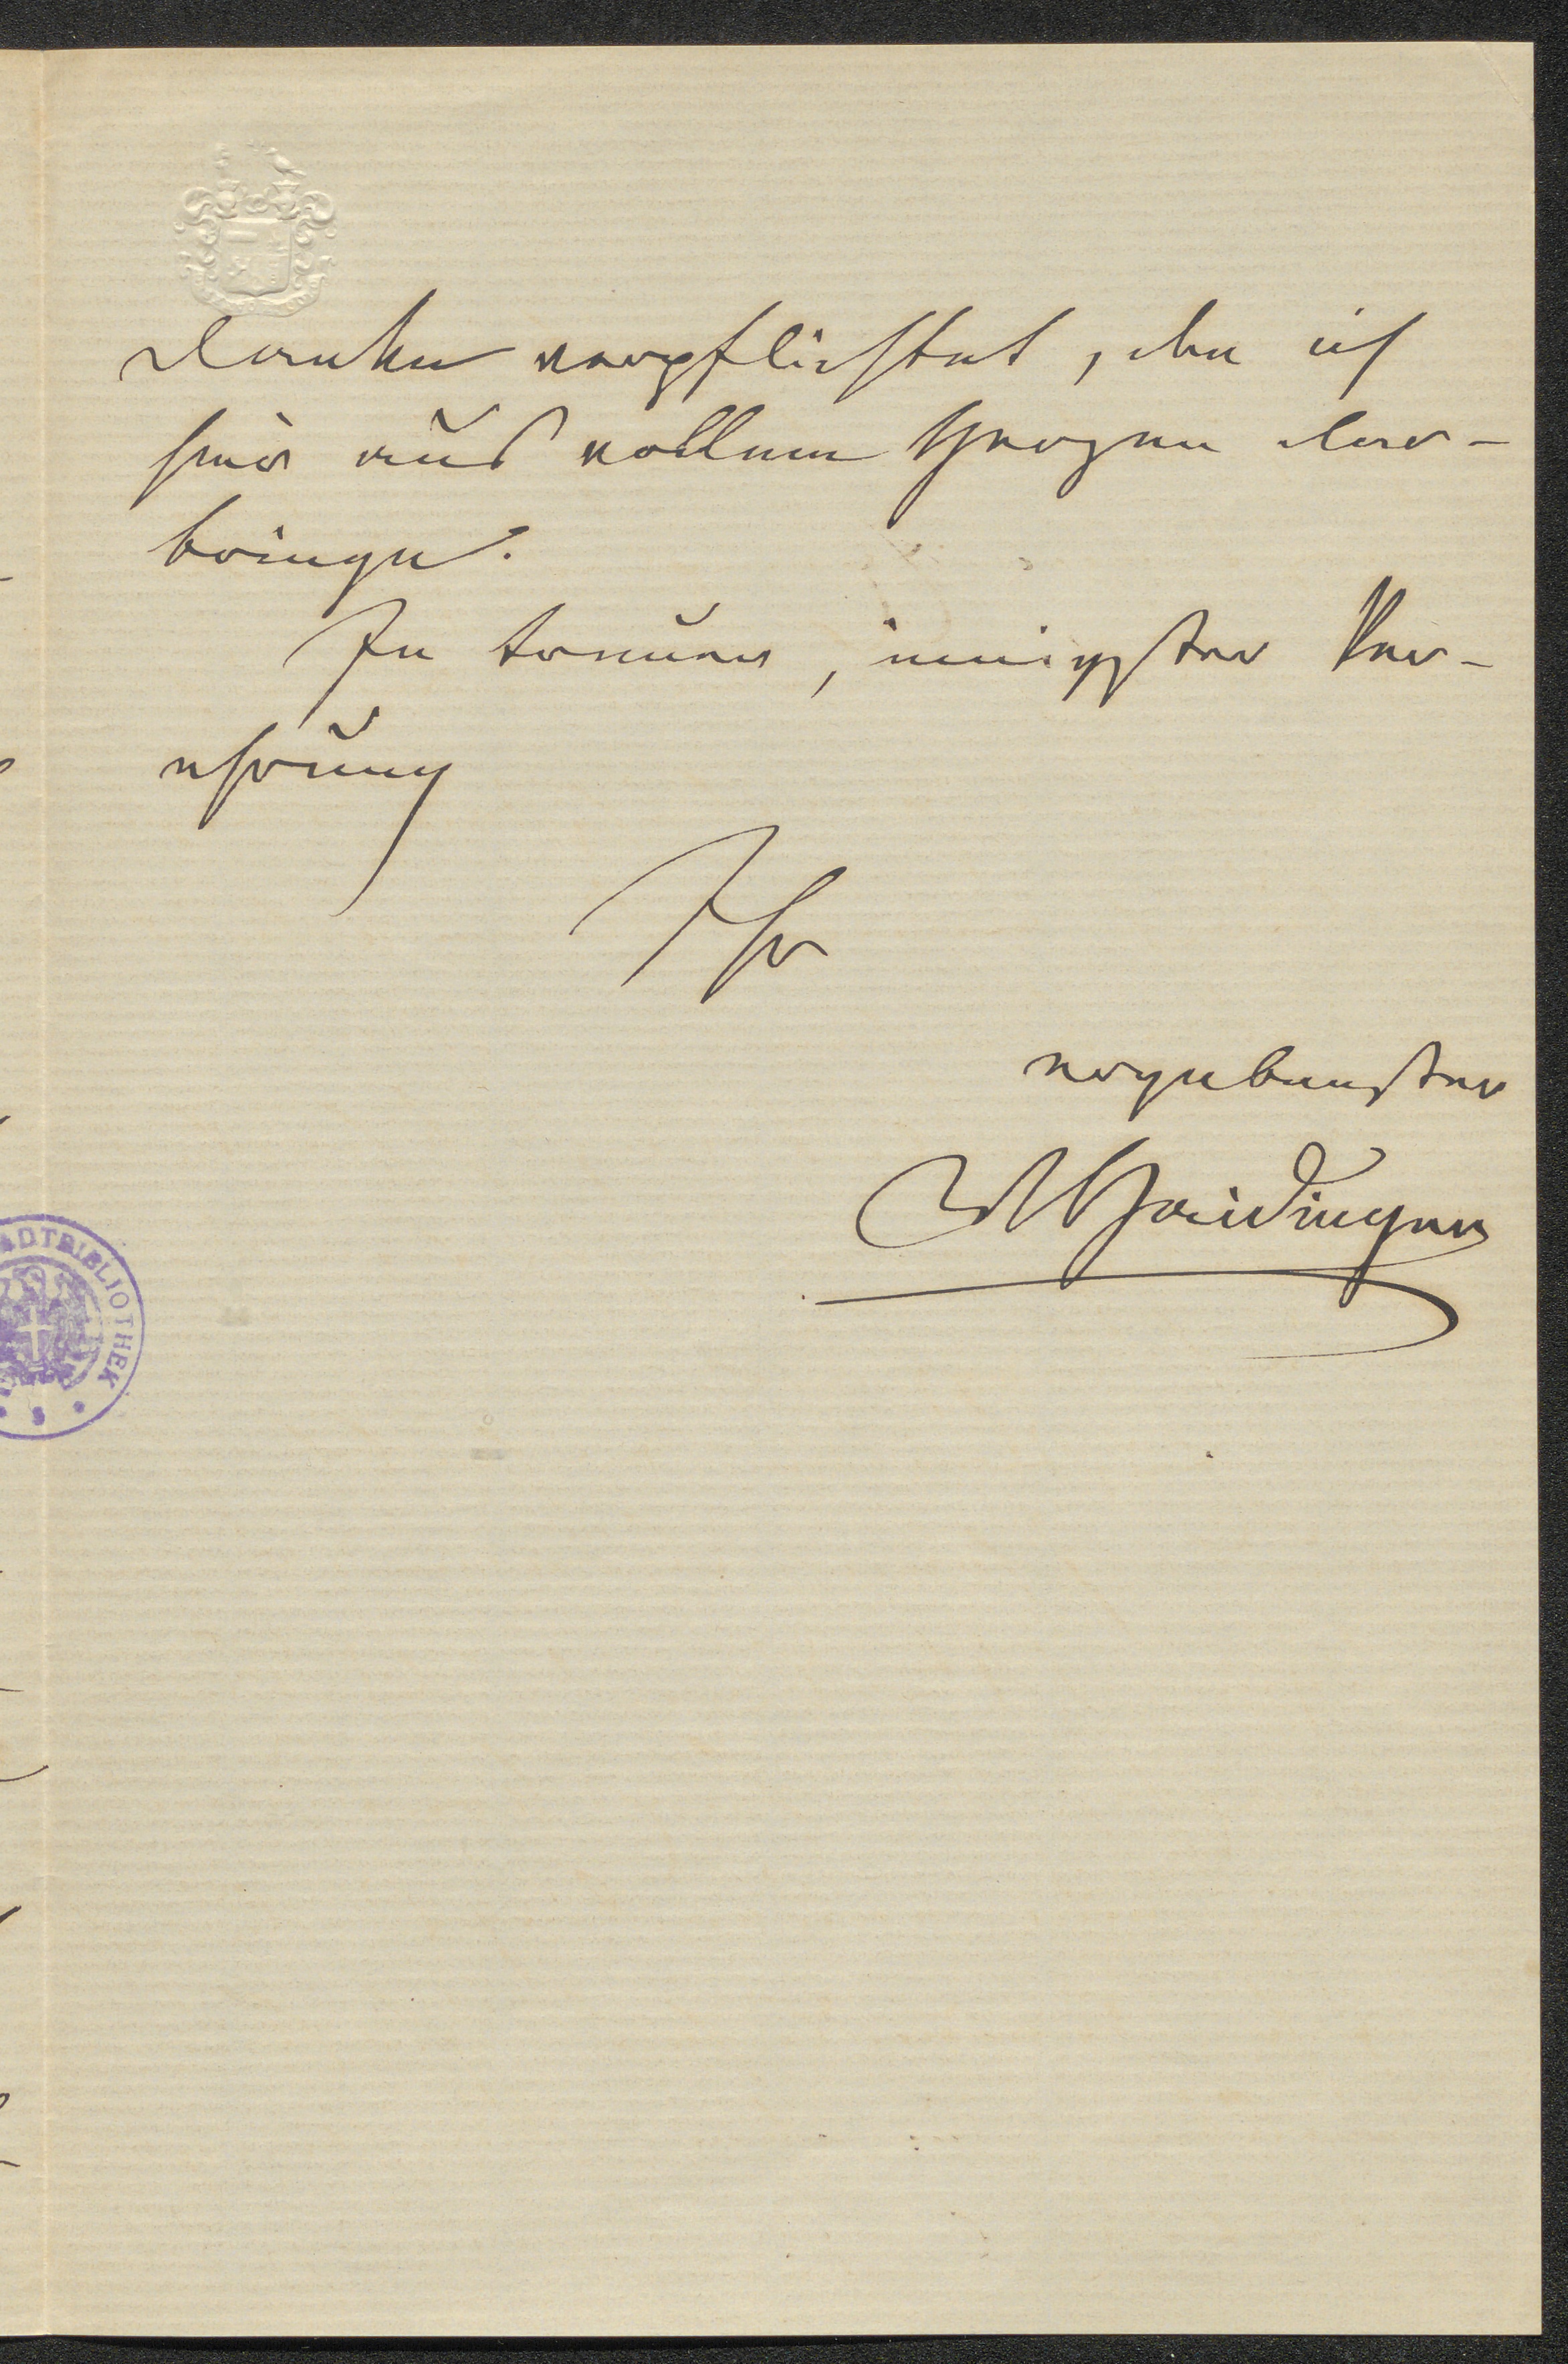 Danke verpflichtet, den ich
hier aus vollem Herzen dar-
bringe.
In treuer, innigster Ver-
ehrung
Ihr
ergebenster
WHaidinger
ADTBIBLIOTHEK